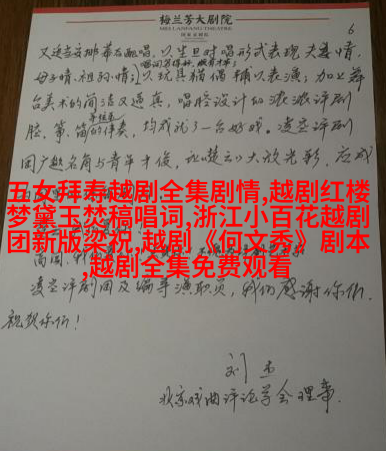 梅兰芳大剧院
MEI LANFANG THEATRE
国家京剧院
6
又适当安排幕后翻唱。以生旦对唱形式表现夫妻情、
母子情、祖孙情;以玩具楷偶辅以表演,加上舞
台美术的简洁又逼真,唱腔设计的浓浓评剧
腔,筝、笛的伴奏,均成就了一台好戏。凌空评剧
团
名角与青年才俊,让楚云大放光彩,应成
五女拜寿越剧全集剧情,越剧红楼
梦黛玉焚稿唱词,浙江小百花越剧
团新版梁祝,越剧《何文秀》剧本
,越剧全集免费观看
凌空评剧团及编导演职员,我们感谢你们,
祝贺你们!
刘
北京戏曲评论学会理事